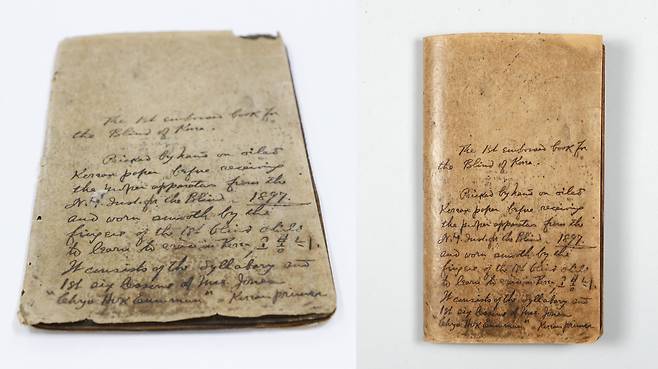 The 1st embossed book for
the Blind of Korea.
Pricked by hand on oiled
Korean paper before receiving
the proper apparatus from the
N.Y. Inst. for the Blind 1897.
and worn smooth by the
fingers of the 1st blind child
to learn to read in Korea
It consists of the syllabary and
1st six lessons of Mrs Jones
Korean primer
The 1st embossed book for
the Blind of Korea.
Pricked by hand on oiled
Korean paper before receiving
the proper apparatus from the
N.Y. Inst. for the Blind 1897.
and worn smooth by the
fingers of the 1st blind child
to learn to read in Korea
It consists of the syllabary and
1st six lessons of Mrs Jones
Korean primer